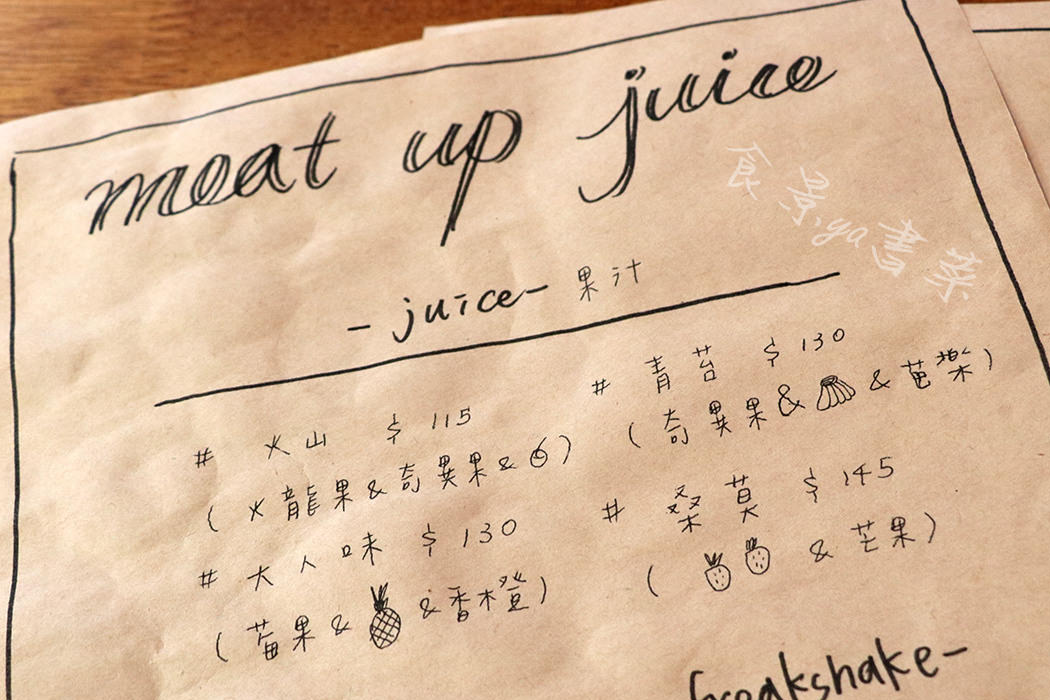 meat up juice
食景.ya書菜
- juice - 果汁
# 火山 $ 115
(火龍果 & 奇異果 & )
# 青苔 $ 130
(奇異果 & & 芭樂)
# 大人味 $ 130
(莓果 & & 香橙)
# 桑莫 $ 145
( & 芒果)
freakshake-